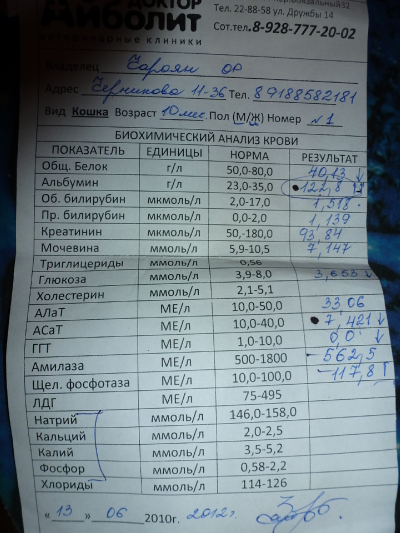 ДОКТОР
АЙБОЛИТ
ветеринарные клиники
Тел. 22-88-58 ул. Дружбы 14
Сот.тел.8-928-777-20-02
Владелец
Адрес Черникова 11-36 Тел. 89188582181
Вид Кошка Возраст 10 мес. Пол (М/Ж) Номер №1
БИОХИМИЧЕСКИЙ АНАЛИЗ КРОВИ
ПОКАЗАТЕЛЬ ЕДИНИЦЫ НОРМА РЕЗУЛЬТАТ
Общ. Белок г/л 50,0-80,0 40,13 ↓
Альбумин г/л 23,0-35,0 122,8
Об. билирубин мкмоль/л 2,0-17,0 1,518
Пр. билирубин мкмоль/л 0,0-2,0 1,139
Креатинин мкмоль/л 50,-180,0 93,84
Мочевина ммоль/л 5,9-10,5 7,147
Триглицериды ммоль/л 0,56
Глюкоза ммоль/л 3,9-8,0 3,653 ↓
Холестерин ммоль/л 2,1-5,1
АЛаТ МЕ/л 10,0-50,0 33,06
АСаТ МЕ/л 10,0-40,0 7,421 ↓
ГГТ МЕ/л 1,0-10,0 0,0 ↓
Амилаза МЕ/л 500-1800 562,5
Щел. фосфотаза МЕ/л 10,0-100,0 117,8 ↑
ЛДГ МЕ/л 75-495
Натрий ммоль/л 146,0-158,0
Кальций ммоль/л 2,0-2,5
Калий ммоль/л 3,5-5,2
Фосфор ммоль/л 0,58-2,2
Хлориды ммоль/л 114-126
«13» 06 2010г. 2012г.